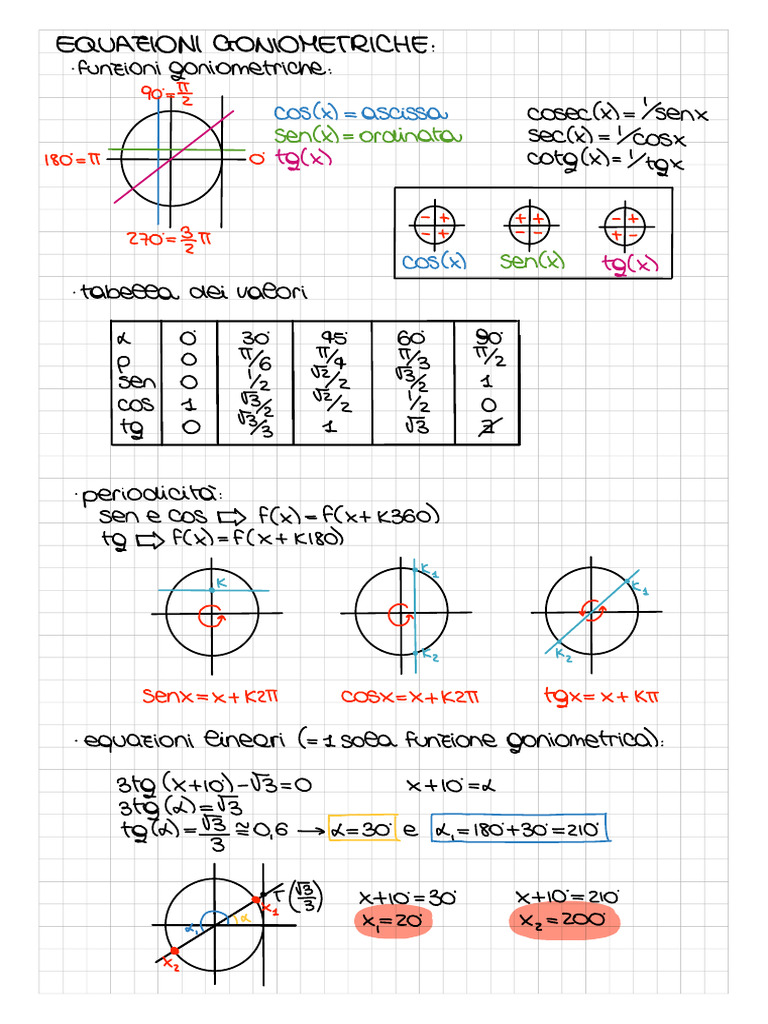 EQUAZIONI GONIOMETRICHE:
· funzioni goniometriche:
90° = π/2
180° = π
0°
270° = 3/2 π
cos(x) = ascissa
sen(x) = ordinata
tg(x)
cosec(x) = 1/senx
sec(x) = 1/cosx
cotg(x) = 1/tgx
- + - +
+ + - -
- + + -
cos(x) sen(x) tg(x)
· tabella dei valori
α 0° 30° 45° 60° 90°
ρ 0 π/6 π/4 π/3 π/2
sen 0 1/2 √2/2 √3/2 1
cos 1 √3/2 √2/2 1/2 0
tg 0 √3/3 1 √3 ∄
· periodicità:
sen e cos ⇨ f(x) = f(x + K360)
tg ⇨ f(x) = f(x + K180)
K
K₁
K₂
K₁
K₂
senx = x + K2π
cosx = x + K2π
tgx = x + Kπ
· equazioni lineari (= 1 sola funzione goniometrica):
3tg(x+10°) - √3 = 0 x+10° = α
3tg(α) = √3
tg(α) = √3/3 ≅ 0,6 → α = 30° e α₁ = 180° + 30° = 210°
T (√3/3)
x₁
α
α₁
x₂
x+10° = 30°
x₁ = 20°
x+10° = 210°
x₂ = 200°